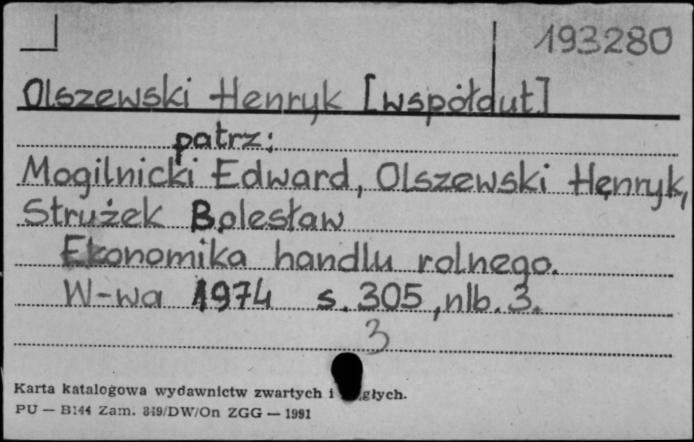 193280
Olszewski Henryk [współaut]
patrz:
Mogilnicki Edward, Olszewski Henryk,
Strużek Bolesław
Ekonomika handlu rolnego.
W-wa 1974 s. 305, nlb. 3.
3
Karta katalogowa wydawnictw zwartych i głych.
PU — B144 Zam. 849/DW/On ZGG — 1991